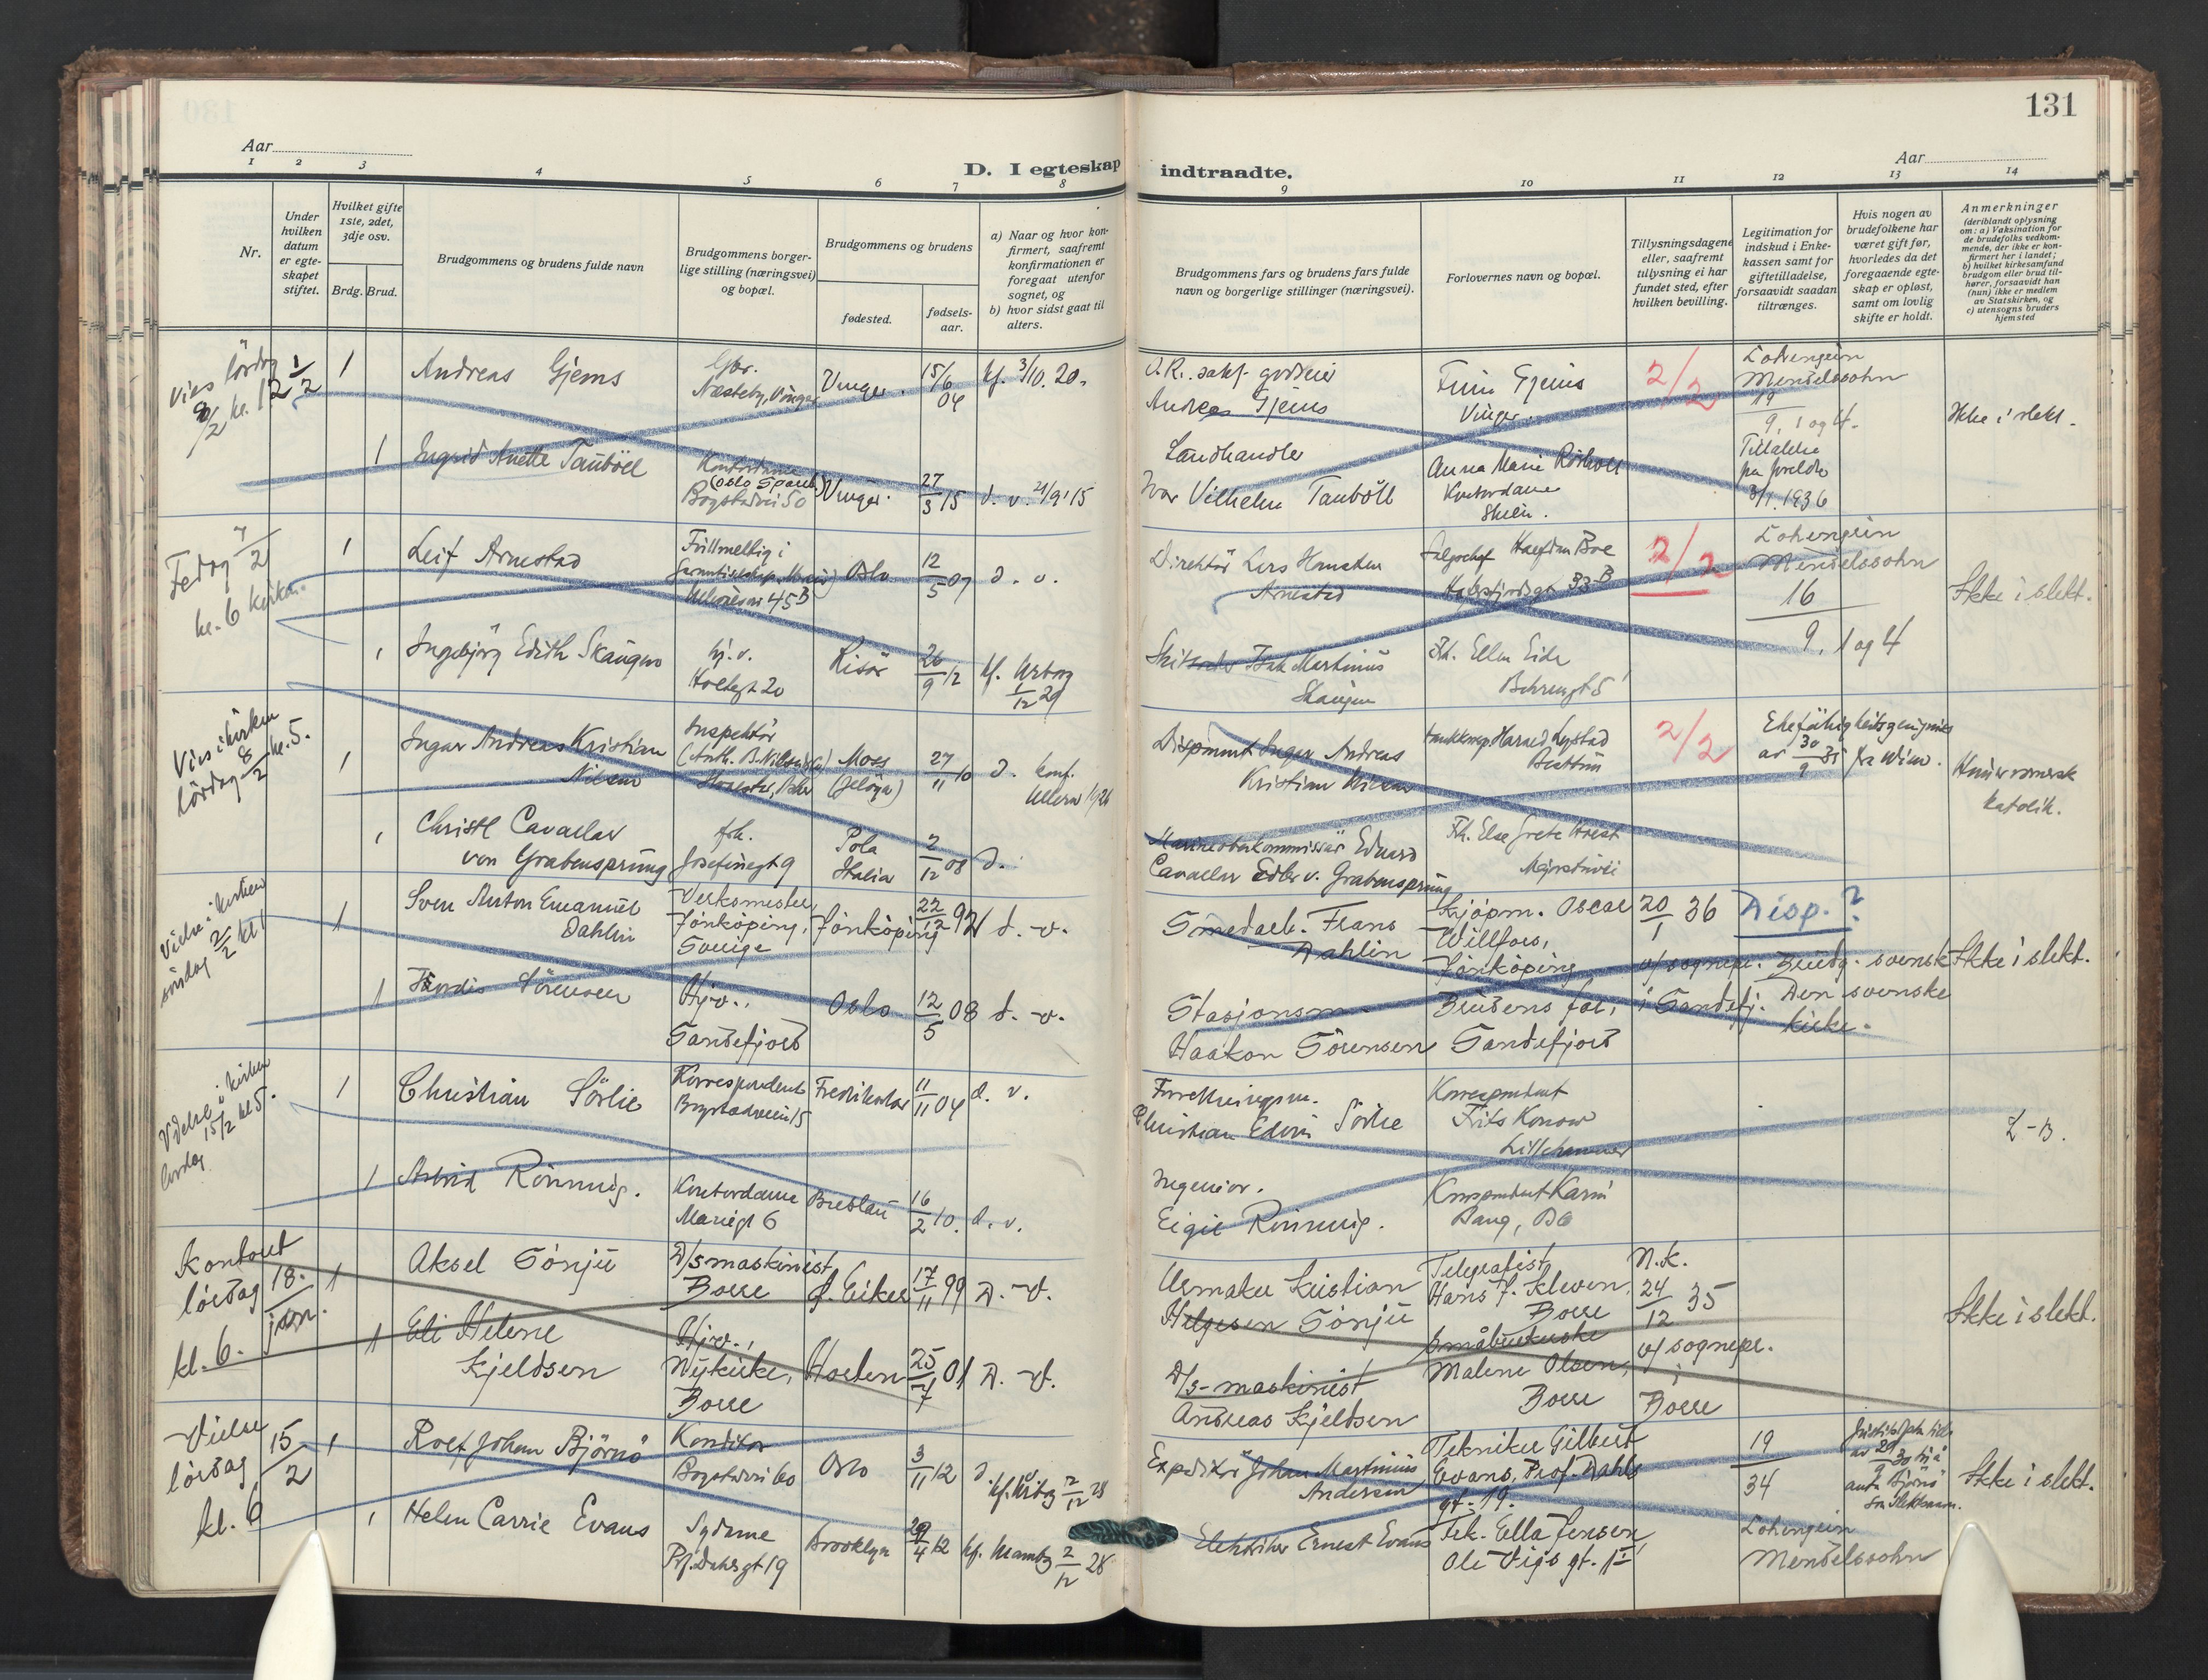 130
131
Aar
D. I egteskap
indtraadte.
Aar
1 2 3 4 5 6 7 8
9 10 11 12 13 14
Nr.
Under hvilken datum er egteskapet stiftet.
Hvilket gifte 1ste, 2det, 3dje osv.
Brdg. Brud.
Brudgommens og brudens fulde navn
Brudgommens borgerlige stilling (næringsvei) og bopæl.
Brudgommens og brudens
fødested.
fødselsaar.
a) Naar og hvor konfirmert, saafremt konfirmationen er foregaat utenfor sognet, og
b) hvor sidst gaat til alters.
Brudgommens fars og brudens fars fulde navn og borgerlige stillinger (næringsvei).
Forlovernes navn og bopæl.
Tillysningsdagene eller, saafremt tillysning ei har fundet sted, efter hvilken bevilling.
Legitimation for indskud i Enkekassen samt for giftetilladelse, forsaavidt saadan tiltrænges.
Hvis nogen av brudefolkene har været gift før, hvorledes da det foregaaende egteskap er opløst, samt om lovlig skifte er holdt.
Anmerkninger
(deriblandt oplysning om: a) Vaksination for de brudefolks vedkommende, der ikke er konfirmert her i landet;
b) hvilket kirkesamfund brudgom eller brud tilhører, forsaavidt han (hun) ikke er medlem av Statskirken, og
c) utensogns bruders hjemsted
Vies lördag
1/2
1
Andreas Gjems
Næsteby, Vinger
Vinger.
15/6 04
kf. 3/10. 20.
Andreas Gjems
Vinger.
2/2
Lohengrin
Mendelssohn
19
9, 1 og 4.
Ikke i slekt.
1
Ingrid Anette Tauböll
Kontordame
Bogstadvei 50
Vinger.
27/3 15
d. v.
Landhandler
Ivar Vilhelm Tauböll
Anna Marie
Kontordame
Skien.
Tillatelse
fra foreldre
3/1. 1936
Fredag 7/2
kl. 6 kirken.
1
Leif Arnestad
Fullmektig i
Ullevålsvei 45B
Oslo
12/5 07
d. v.
Direktör Lars Hansen
Arnestad
Halfdan Boe
33B
2/2
Lohengrin
Mendelssohn
16
9, 1 og 4
Ikke i slekt.
1
Ingebjörg Edith Skaugen
hj. v.
Holtegt 20
Risör
26/9 12
kf. Uranbg
1/12 29
Martinius
Skaugen
Frk. Ellen Eide
Behrensgt 5
Vies i kirken
lördag 8/2 kl. 5.
1
Ingar Andreas Kristian
Nilsen
Inspektör
Moss
(Jelöya)
27/11 10
d. konf.
Ullern
Disponent Ingar Andreas
Kristian Nilsen
Harald Lystad
Bestum
2/2
Ehefähigkeitszeugnis
fra Wien.
Hun er romersk
katolik.
1
Christl Cavallar
von Grabensprung
frk.
Josefinegt 9
Pola
Italia
2/12 08
d.
Marineoberkommissär Eduard
Cavallar Edler v. Grabensprung
Frk. Else Grete
Vielse i kirken
söndag 2/2 kl 1
1
Sven Anton Emanuel
Dahlin
Verksmester,
Jönköping,
Sverige
Jönköping
22/12
d. v.
Smedarb. Frans
Dahlin
Kjöpm. Oscar
Willfors,
Jönköping
20/1 36
v/ sognepr.
i Sandefj.
Disp.?
Brudg. svensk
Den svenske
kirke.
Ikke i slekt.
1
Hjördis Sörensen
Hjv.,
Sandefjord
Oslo
12/5 08
d. v.
Stasjonsm.
Haakon Sörensen
Brudens far,
Sandefjord
Vielse i kirken
15/2 kl 5.
lördag
1
Christian Sörlie
Korrespondent
Bogstadveien 15
Fredrikstad
11/11 04
d. v.
Forretningsm.
Christian Edvin Sörlie
Korrespondent
Frits Konow
Lillehammer
1
Astrid Rönning.
Kontordame
Mariegt 6
Breslau
16/2 10.
d. v.
Ingeniör.
Rönning.
Korrespondent Karin
Bang,
Kontoret
lördag 18. jan.
kl. 6.
1
Aksel Sönju
D/s maskinist,
Borre
Ö. Eiker
17/11 99
D. v.
Urmaker Kristian
Helgesen Sönju
Telegrafist
Hans J. Kleven,
Borre
N.K.
24/12 35
v/ sognepr.
i
Borre
Ikke i slekt.
1
Eli Helene
Kjeldsen
Hjv.,
Nykirke,
Borre
Horten
25/7 01
D. v.
D/s-maskinist
Andreas Kjeldsen
Småbrukerske
Malene Olsen,
Borre
Vielse
lördag 15/2
kl. 6
1
Rolf Johan Björnö
Konditor
Bogstadvei 60
Oslo
3/11 12
d.
Expeditör Johan Martinius
Andersen
Tekniker Gilbert
Evans, Prof. Dahls
gt. 19.
19
34
Ikke i slekt.
1
Helen Carrie Evans
Sydame
Prf. Dahls gt 19
Brooklyn
29/4 12
kf. Uranbg 2/12 28
Elektriker Ernest Evans
Frk. Ella Jensen,
Ole Vigs gt.
Lohengrin
Mendelssohn